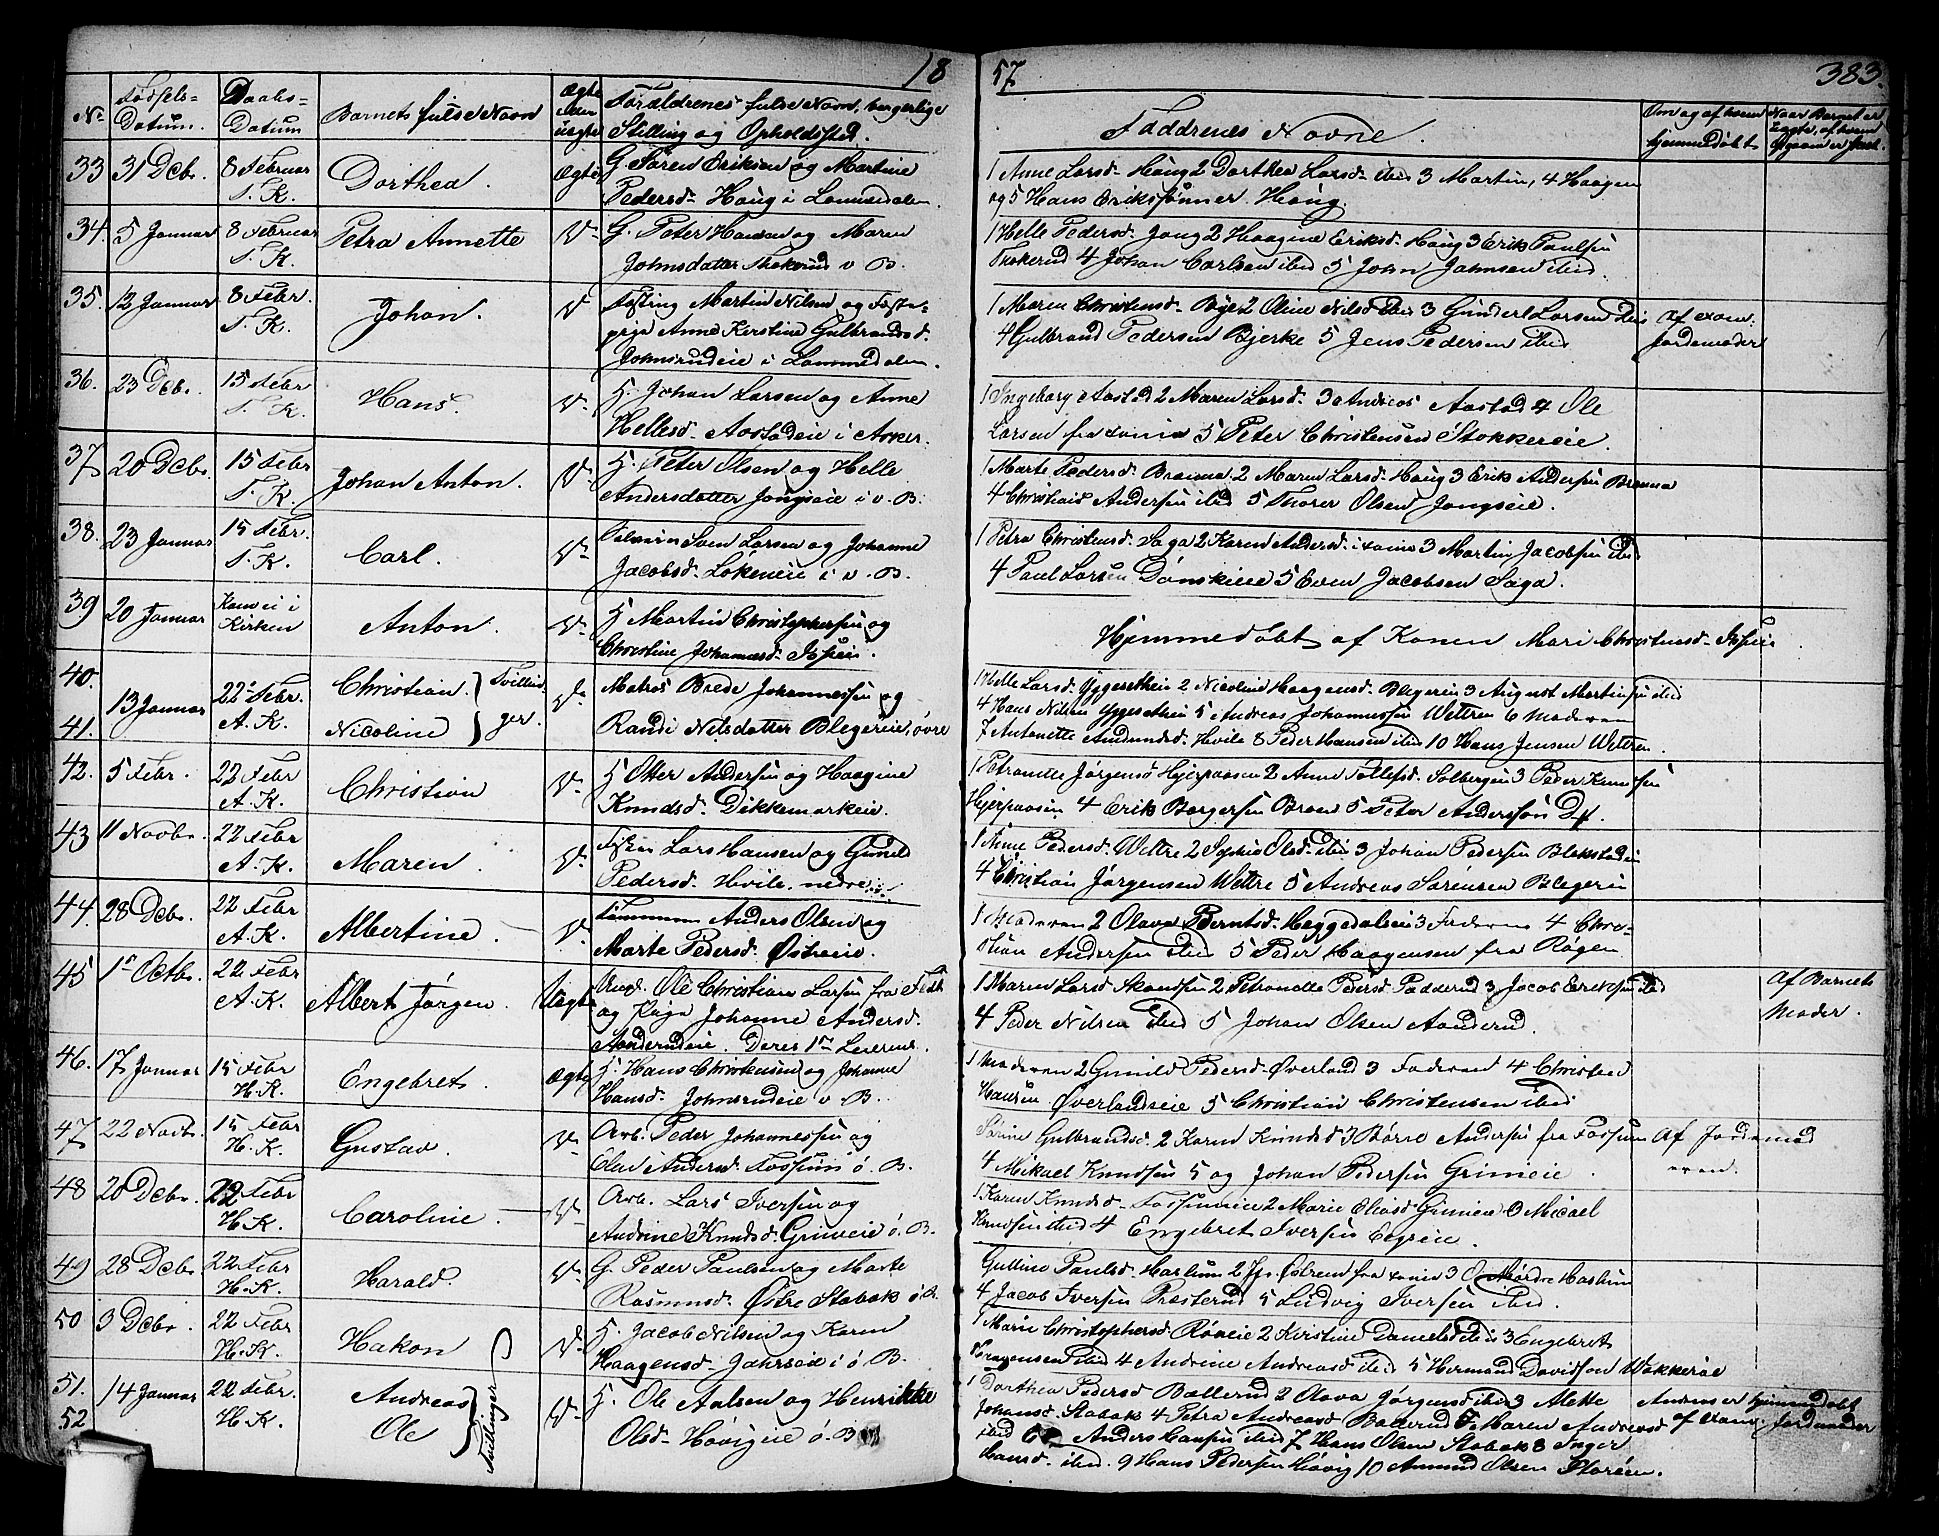 18 57 383.
No Fødsels-Datum. Daabs-Datum Barnets fulde Navn Ægte eller uægte Forældrenes fulde Navn, borgerlige Stilling og Opholdsted. Faddrenes Navne. Om og af hvem hjemmedøbt Naar Barnet er
33 31 Dcb. 8 Februar T. K. Dorthea. Ægte G. Søren Eriksen og Martine
Pedersd. Haug i Lommedalen.
1 Anne Larsd. Haug 2 Dorthea Larsd. ibid 3 Martin, 4 Haagen
og 5 Hans Erikssønner Haug.
34. 5 Januar 8 Februar T. K. Petra Annette Do G. Peter Hansen og Maren
Johnsdatter v. B.
1 Helle Pedersd. Jong 2 Haagine Eriksd. Haug 3 Erik Paulsen
4 Johan Carlsen ibid 5 John Johnsen ibid.
35. 12 Januar 8 Febr. T. K. Johan. Do Martin Nilsen og
Anne Kirstine Gulbrandsd.
Johnsrudeie i Lommedalen.
1 Maren Christensd. Bye 2 Oline Nilsd ibid 3 Gunder Larsen ibid
4 Gulbrand Pedersen Bjerke 5 Jens Pedersen ibid
Af exam. Jordemoder
36. 23 Dcb. 15 Febr T. K. Hans. Do H. Johan Larsen og Anne
Hellesd. Aostadeie i Asker.
1 Ingeborg Aastad 2 Maren Larsd. 3 Andreas Aastad 4 Ole
Larsen fra 5 Peter Christensen Stokkereie.
37 20 Dcb. 15 Febr T. K. Johan Anton. Do H. Peter Olsen og Helle
Andersdatter Jongseie i v. B.
1 Marte Pedersd. Brenna 2 Maren Larsd. Haug 3 Erik Andersen Brenna
4 Christian Andersen ibid 5 Thorer Olsen Jongseie.
38. 23 Januar 15 Febr. T. K. Carl. Do Sven Larsen og Johanne
Jacobsd. Løkeneie i v. B.
1 Petra Christensd. Saga 2 Karen Andersd. 3 Martin Jacobsen ibid
4 Paul Larsen Dønskieie 5 Even Jacobsen Saga.
39 20 Januar Kom ei i Kirken Anton. Do H Martin Christophersen og
Christine Johannesd.
Hjemmedøbt af Konen Mari Christensd.
40. 13 Januar 22 Febr. A. K. Christian. } Tvillin-
41. Nicoline } ger. Do Matros Brede Johannessen og
Randi Nilsdatter Blegerie, øvre
1 Helle Larsd. 2 Nicoline Haagensd. Blegerie 3 August Martinsen ibid
4 Hans Nilsen 5 Andreas Johannessen Wettre 6 Moderen
7 Antonette Amundsd. Hvile 8 Peder Hansen ibid 10 Hans Jensen Wettre.
42. 5 Febr. 22 Febr A. K. Christian Do H Otter Andersen og Haagine
Knudsd. Dikkemarkeie.
1 Petronelle Jørgensd 2 Anne Tollefsd. Solbergeie 3 Peder Knudsen
4 Erik Borgersen Braen 5 Peter Anderssøn D.
43 11 Novbr. 22 Febr A. K. Maren Do Lars Hansen og Gunild
Pedersd. Hvile, nedre
1 Anne Pedersd. Wettre 2 Sophie Olsd. ibid 3 Johan Pedersen Blakstad
4 Christian Jørgensen Wettre 5 Andreas Sørensen Blegerie
44. 28 Dcb. 22 Febr A. K. Albertine. Do Tømmermand Anders Olsen og
Marte Pedersd. Østreeie.
1 Moderen 2 Olava Berntsd. Heggedaleie 3 Faderen 4 Chri-
stian Andersen ibid 5 Peder Haagensen fra Røgen
45 1 Octb. 22 Febr A. K. Albert Jørgen. Uægte Ung. Ole Christian Larsen fra
og Pige Johanne Andersd.
Aanderudeie. Deres 1ste Leierm.
1 Maren Larsd 2 Petronelle Pedersd Padderud 3 Jacob Eriksen ibid
4 Peder Nilsen ibid 5 Johan Olsen Aanderud.
Af Barnets Moder.
46. 17 Januar 15 Febr H. K. Engebret. Ægte H. Hans Christensen og Johanne
Hansd. Johnsrudeie v. B.
1 Moderen 2 Gunild Pedersd. Øverland 3 Faderen 4 Christian
Hansen Øverlandseie 5 Christian Christensen ibid
47 22 Novb. 15 Febr H. K. Gustav. Do Arb. Peder Johannessen og
Andersd. Fossum ø. B.
Gulbrandsd. 2 Karen Knudsd 3 Børre Andersen fra Fossum
4 Mikael Knudsen 5 og Johan Pedersen Grinieie.
Af Jordemoderen.
48 20 Dcb. 22 Febr H. K. Caroline. Do Arb. Lars Iversen og
Andrine Knudsd. Grinieie ø. B.
1 Karen Knudsd. Fossumeie 2 Marie Eliasd 3 Micael
Knudsen ibid 4 Engebret Iversen
49 28 Dcb. 22 Febr H. K. Harald. Do G. Peder Paulsen og Marte
Rasmusd. Østre Stabæk ø. B.
Gulline Paulsd. Haslum 2 Østern 3 Haslum
4 Jacob Iversen Presterud 5 Ludvig Iversen ibid.
50 3 Dcbr. 22 Febr H. K. Hakon Do H. Jacob Nilsen og Karen
Haagensd. i ø. B.
1 Marie Christophersd. 2 Kirstine Danielsd ibid 3 Engebret
ibid 4 Andrine Andreasd ibid 5 Herman Davidsen Wakkerøe
51. 14 Januar 22 Febr. H. K. Andreas } Tvillinger
52 Ole Do H. Ole Aalsen og Henrikke
Olsd. Høvigeie ø. B
1 Dorthea Pedersd Ballerud 2 Olava Jørgensd ibid 3 Alette
Johansd. Stabæk 4 Petra Andreasd Ballerud 5 Maren Andreasd
ibid 6 Anders Hansen ibid 7 Hans Olsen Stabæk 8 Inger
Hansd. ibid. 9 Hans Pedersen Høvig 10 Amund Olsen
Andreas er hjemmedøbt af exam. Jordemoder